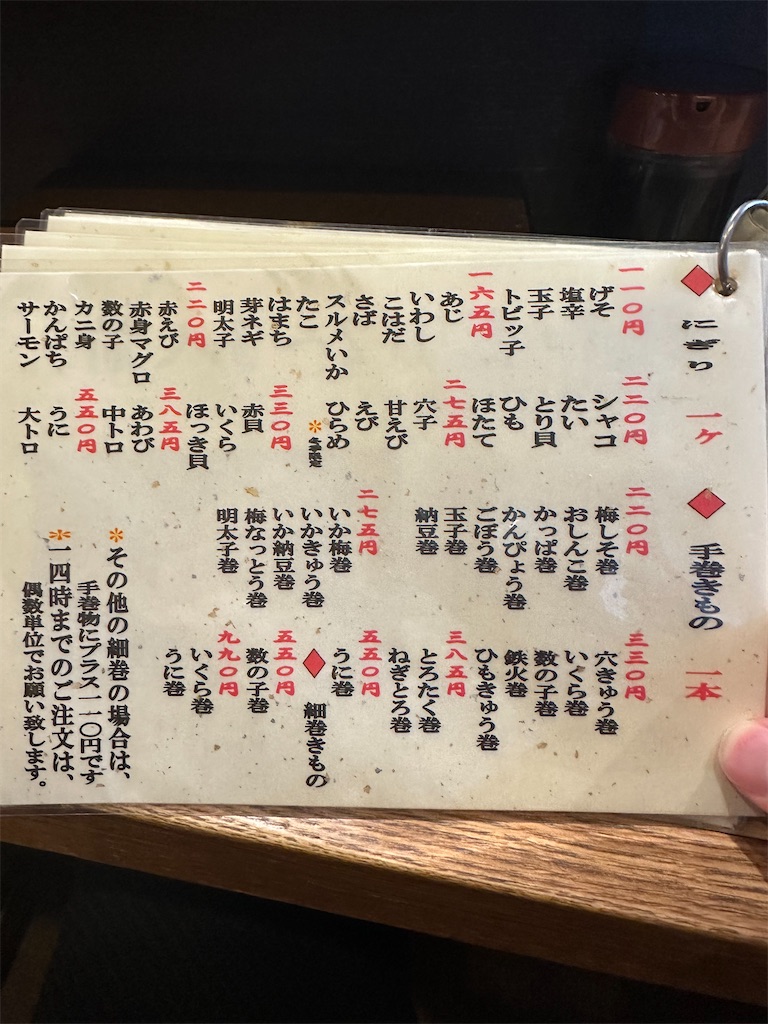 ◆にぎり 一ケ
一一〇円
げそ
塩辛
玉子
トビッ子
一六五円
あじ
いわし
こはだ
さば
スルメいか
たこ
はまち
芽ネギ
明太子
二二〇円
赤えび
赤身マグロ
数の子
カニ身
かんぱち
サーモン
二二〇円
シャコ
たい
とり貝
ひも
ほたて
二七五円
穴子
甘えび
えび
ひらめ
*冬季限定
三三〇円
赤貝
いくら
ほっき貝
三八五円
あわび
中トロ
五五〇円
うに
大トロ
◆手巻きもの 一本
二二〇円
梅しそ巻
おしんこ巻
かっぱ巻
かんぴょう巻
ごぼう巻
玉子巻
納豆巻
二七五円
いか梅巻
いかきゅう巻
いか納豆巻
梅なっとう巻
明太子巻
三三〇円
穴きゅう巻
いくら巻
数の子巻
鉄火巻
ひもきゅう巻
三八五円
とろたく巻
ねぎとろ巻
五五〇円
うに巻
◆細巻きもの
五五〇円
数の子巻
九九〇円
いくら巻
うに巻
*その他の細巻の場合は、
手巻物にプラス一一〇円です
*一四時までのご注文は、
偶数単位でお願い致します。